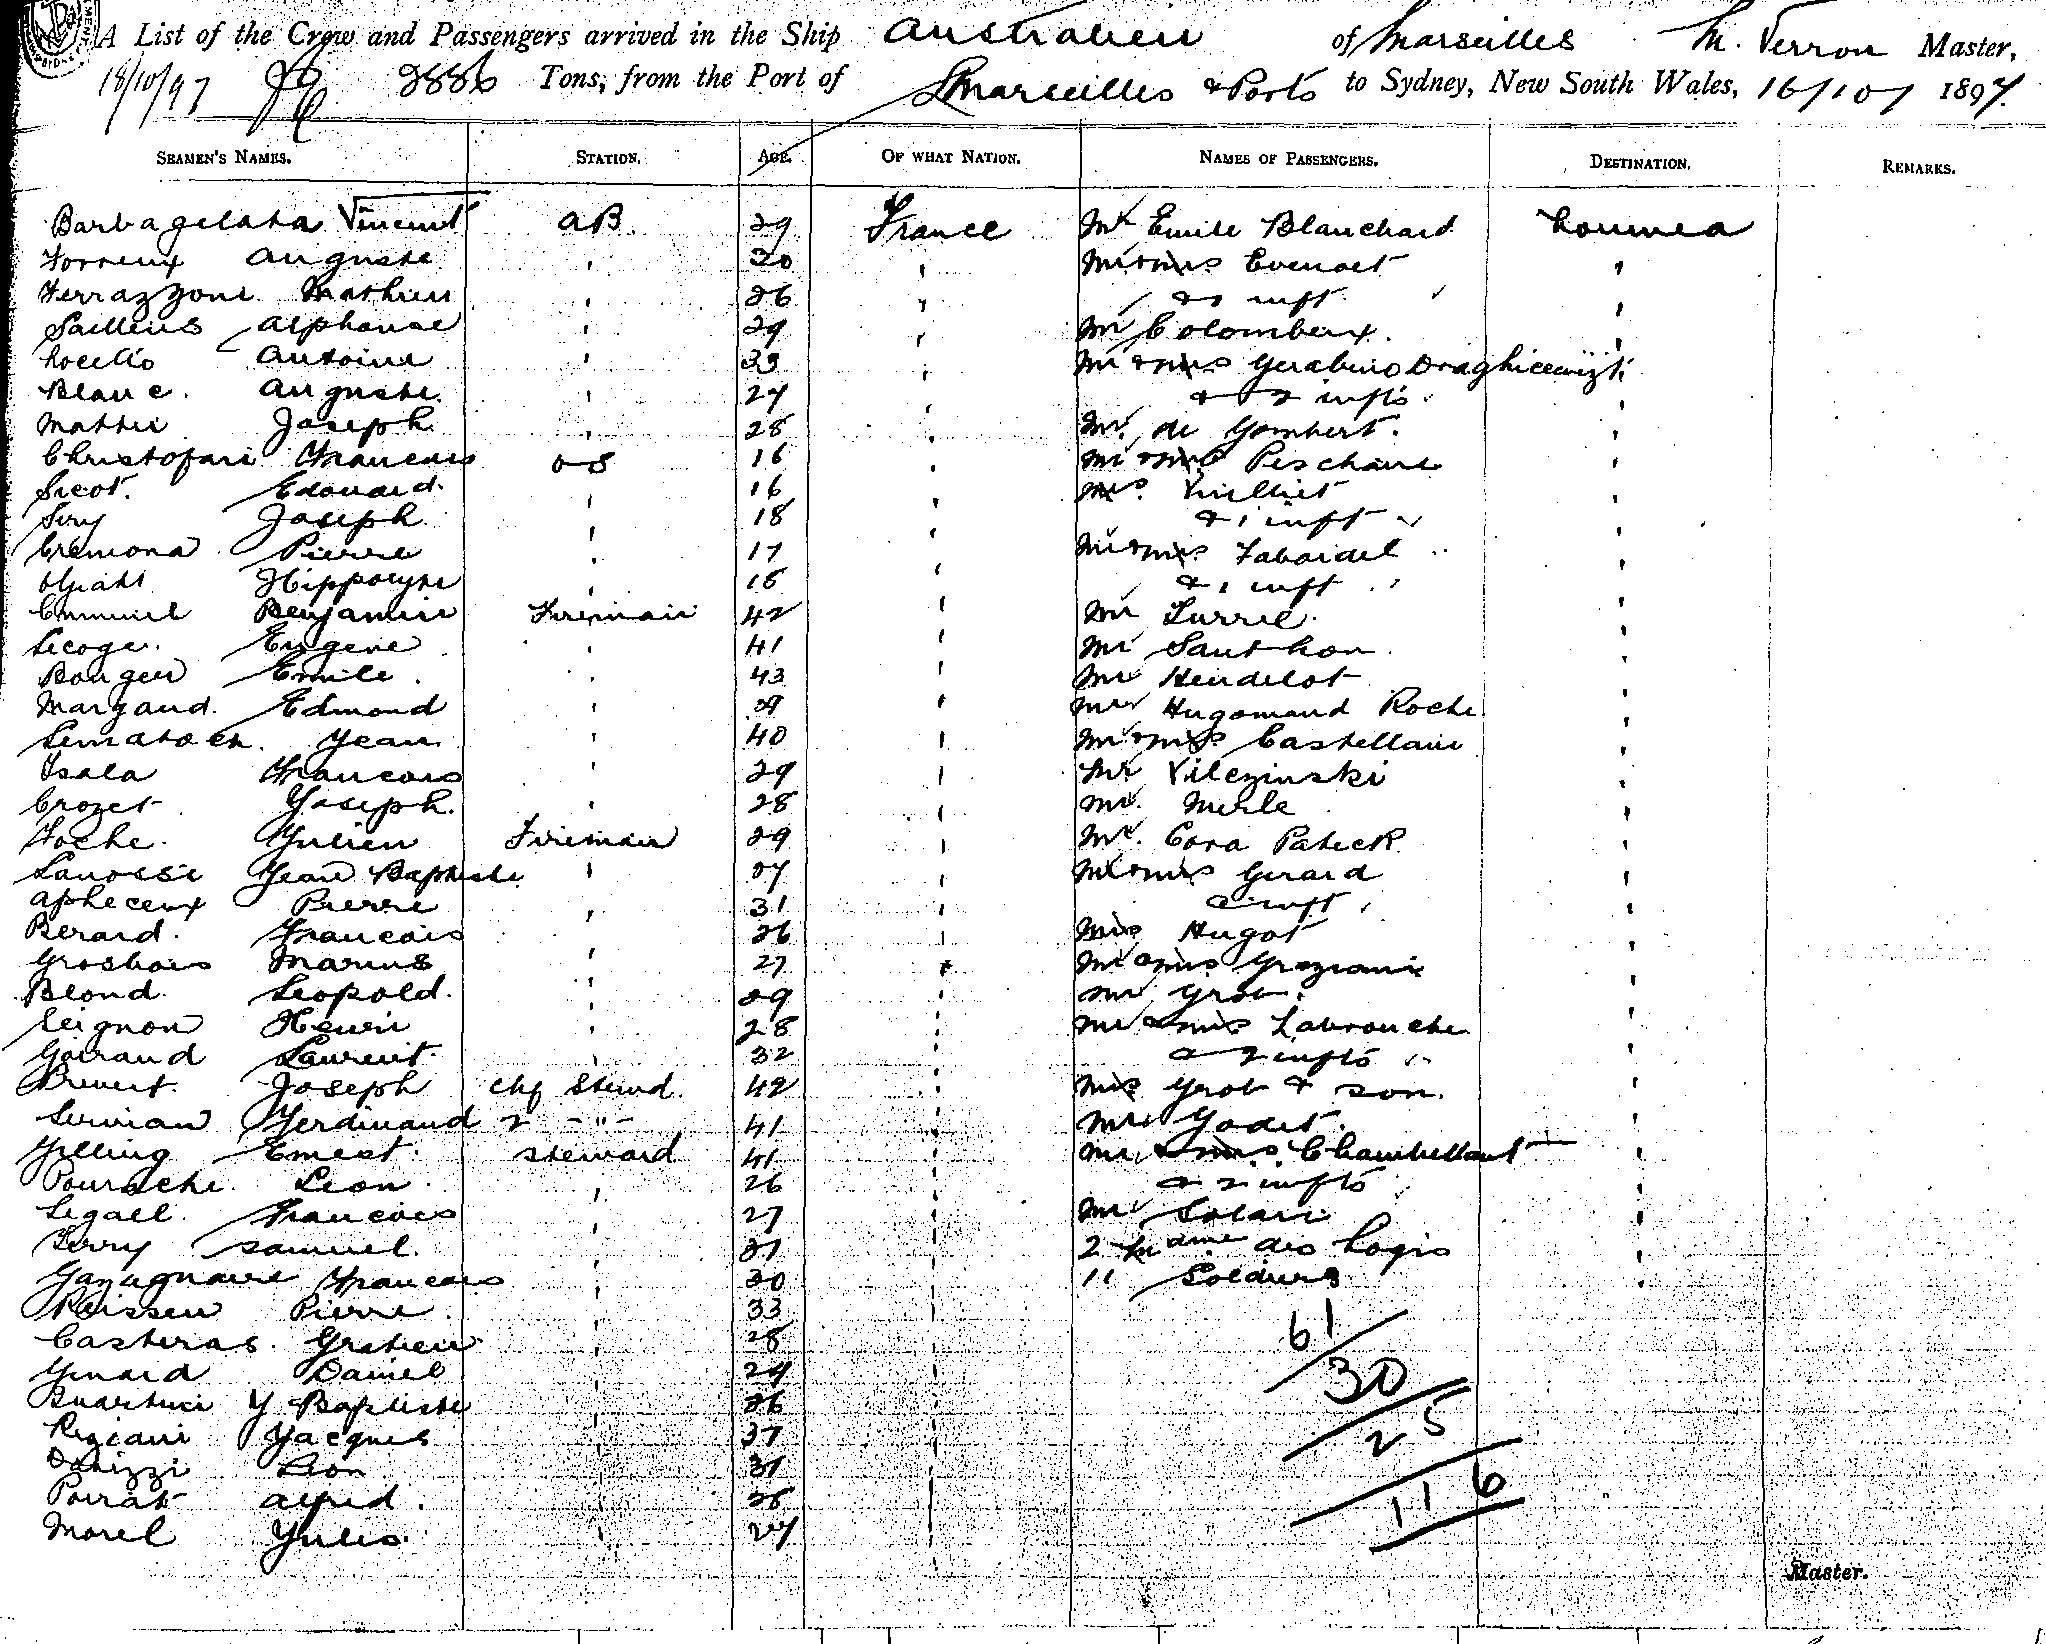 A List of the Crew and Passengers arrived in the Ship Australien of Marseilles M. Verron Master,
18/10/97 2886 Tons, from the Port of Marseilles & Ports to Sydney, New South Wales, 16/10/ 1897.
SEAMEN'S NAMES. STATION. AGE. OF WHAT NATION. NAMES OF PASSENGERS. DESTINATION. REMARKS.
Barbagelata Vincent AB 29 France Mr Emile Blanchard Noumea
Auguste 20 Mr & Mrs Evenoet
Terrazzoni Mathieu 26 & inft
Saillens Alphonse 29 Mr Colombeix
Antoine 33 Mr & Mrs Gerabino
Blanc. Auguste. 27 & 2 infts
Mattei Joseph 28 Mr. de Gombert.
Christofari Francois OS 16 Mr & Mrs
Sicot. Edouard. 16 Mrs.
Siry Joseph 18 & 1 inft
Cremona Pierre 17 Mr & Mrs
Hippolyte 18 & 1 inft
Benjamin Fireman 42 Mr
Lecoge. Eugene 41 Mr Santhon
Emile 43 Mr Heudelot
Margaud. Edmond 29 Mr Hugomand Roche
Jean 40 Mr & Mrs Castellani
Isala Francois 29 Mr Vilczinski
Crozet Joseph. 28 Mr. Merle
Foche. Julien Fireman 29 Mr. Cora Pateck
Jean Baptiste 27 Mr & Mrs Gerard
Apheceix Pierre 31 & inft
Berard. Francois 26 Mrs Hugot
Grosbois Marius 27 Mr & Mrs Graziani
Blond. Leopold. 29 Mr Grob.
Seignon Henri 28 Mr & Mrs Labrouche
Goiraud Laurent. 32 & 2 infts
Prevert. Joseph chf Stewd. 42 Mrs Grob & son.
Ferdinand 2 -"- 41 Mr Godet.
Ernest. Steward 41 Mr & Mrs Chambellant
Leon 26 & 2 infts
Legall. Francois 27 Mr Solari
Samuel. 31 2 des Logis
Gazagnaire Francois 30 11 Soldiers
Reissen Pierre 33
Casteras. Gratien 28
Genard Daniel 24
J Baptiste 26
Jacques 37
Leon 31
Poirat Alfred. 28
Morel Jules. 27
61
30
25
116
Master.